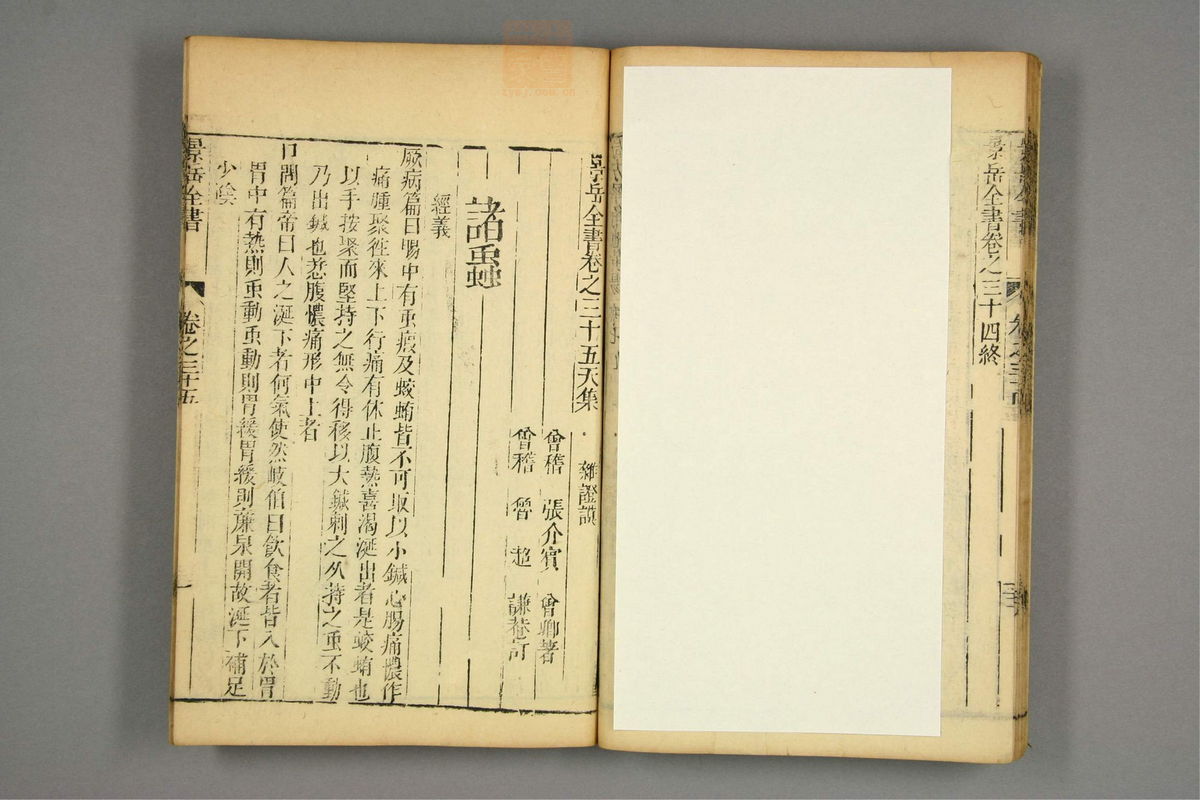 景岳全書卷之三十四終
景岳全書卷之三十五天集 雜證謨
會稽 張介賓 會卿著
會稽 魯超 謙菴訂
諸蟲
經義
厥病篇曰腸中有蟲瘕及蛟蛕皆不可取以小鍼心腸痛憹作
痛腫聚往來上下行痛有休止腹熱喜渴涎出者是蛟蛕也
以手按聚而堅持之無令得移以大鍼刺之久持之蟲不動
乃出鍼也恐腹憹痛形中上者
口問篇帝曰人之涎下者何氣使然岐伯曰飲食者皆入於胃
胃中有熱則蟲動蟲動則胃緩胃緩則廉泉開故涎下補足
少陰
景岳全書 卷之三十五 一